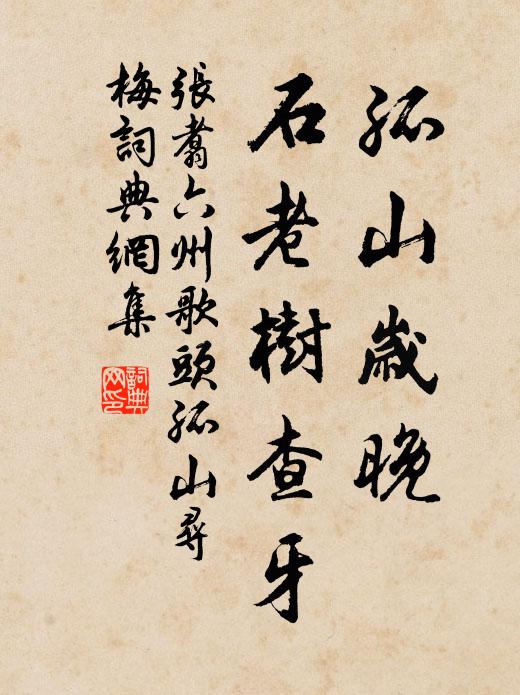 孤山歲晚
石老樹查牙
張翥六州歌頭孤山尋
梅詞典網集
詞典
网印